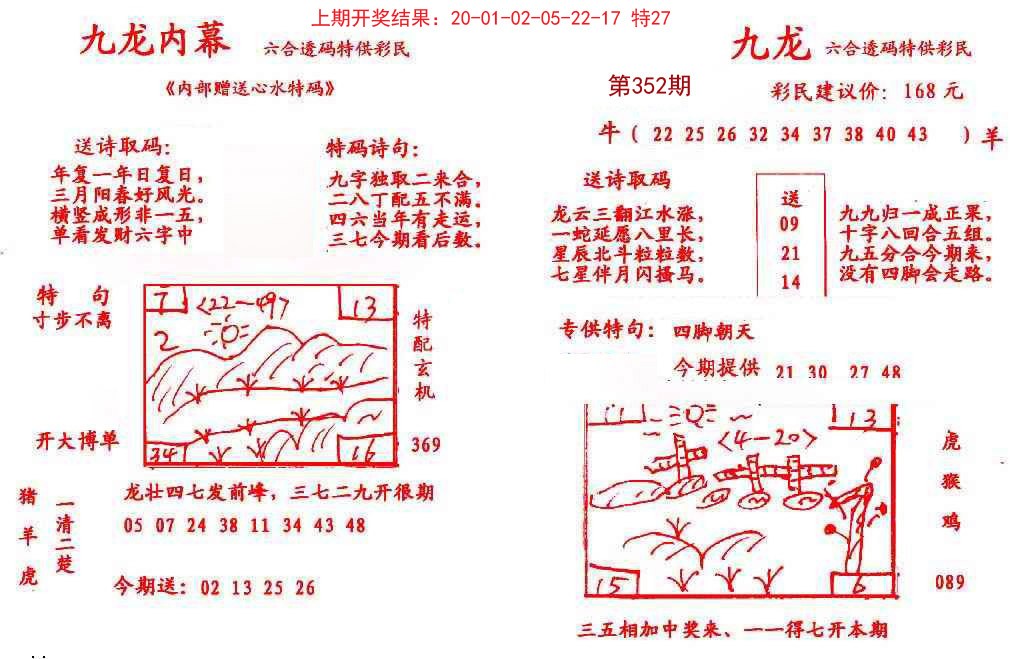 上期开奖结果：20-01-02-05-22-17 特27
九龙内幕 六合透码特供彩民
《内部赠送心水特码》
送诗取码：
年复一年日复日，
三月阳春好风光。
横竖成形非一五，
单看发财六字中
特码诗句：
九字独取二来合，
二八丁配五不满。
四六当年有走运，
三七今期看后数。
特 句
寸步不离
开大博单
7
<22-49>
13
2
34
16
特配玄机
369
猪羊虎
一清二楚
龙壮四七发前峰，三七二九开很期
05 07 24 38 11 34 43 48
今期送：02 13 25 26
九龙 六合透码特供彩民
第352期
彩民建议价：168元
牛（22 25 26 32 34 37 38 40 43 ）羊
送诗取码
龙云三翻江水涨，
一蛇延愿八里长，
星辰北斗粒粒数，
七星伴月闪搔马。
送
09
21
14
九九归一成正果，
十字八回合五组。
九五分合今期来，
没有四脚会走路。
专供特句：四脚朝天
今期提供 21 30 27 48
11
13
<4-20>
15
6
虎
猴
鸡
089
三五相加中奖来、一一得七开本期